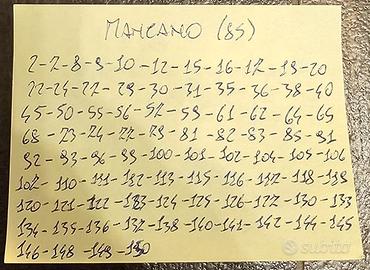 MANCANO (85)
2-7-8-9-10-12-15-16-17-19-20
22-24-27-29-30-31-35-36-38-40
45-50-55-56-57-59-61-62-64-65
68-73-74-77-79-81-82-83-85-91
92-93-96-99-100-101-102-104-105-106
107-110-111-112-113-115-116-117-118-119
120-121-122-123-124-125-126-127-130-133
134-135-136-137-138-140-141-142-144-145
146-148-149-150
subito